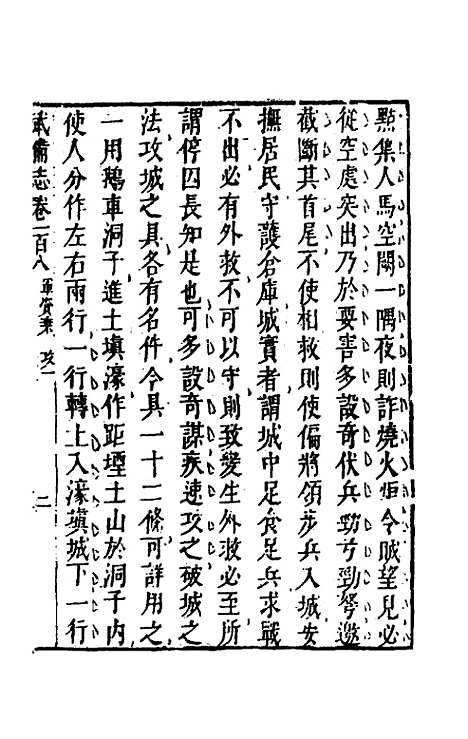 點集人馬空闕一隅夜則詐燒火炬令賊望見必
從空處突出乃於要害多設奇伏兵勁弓勁弩邀
截斷其首尾不使相救則使偏將領步兵入城安
撫居民守護倉庫城實者謂城中足食足兵求戰
不出必有外救不可以守則致變生外救必至所
謂停囚長知是也可多設奇謀疾速攻之破城之
法攻城之具各有名件今具一十二條可詳用之
一用鵝車洞子進土填濠作距堙土山於洞子內
使人分作左右兩行一行轉土入濠填城下一行
武備志卷一百八 軍資乘 攻一 二